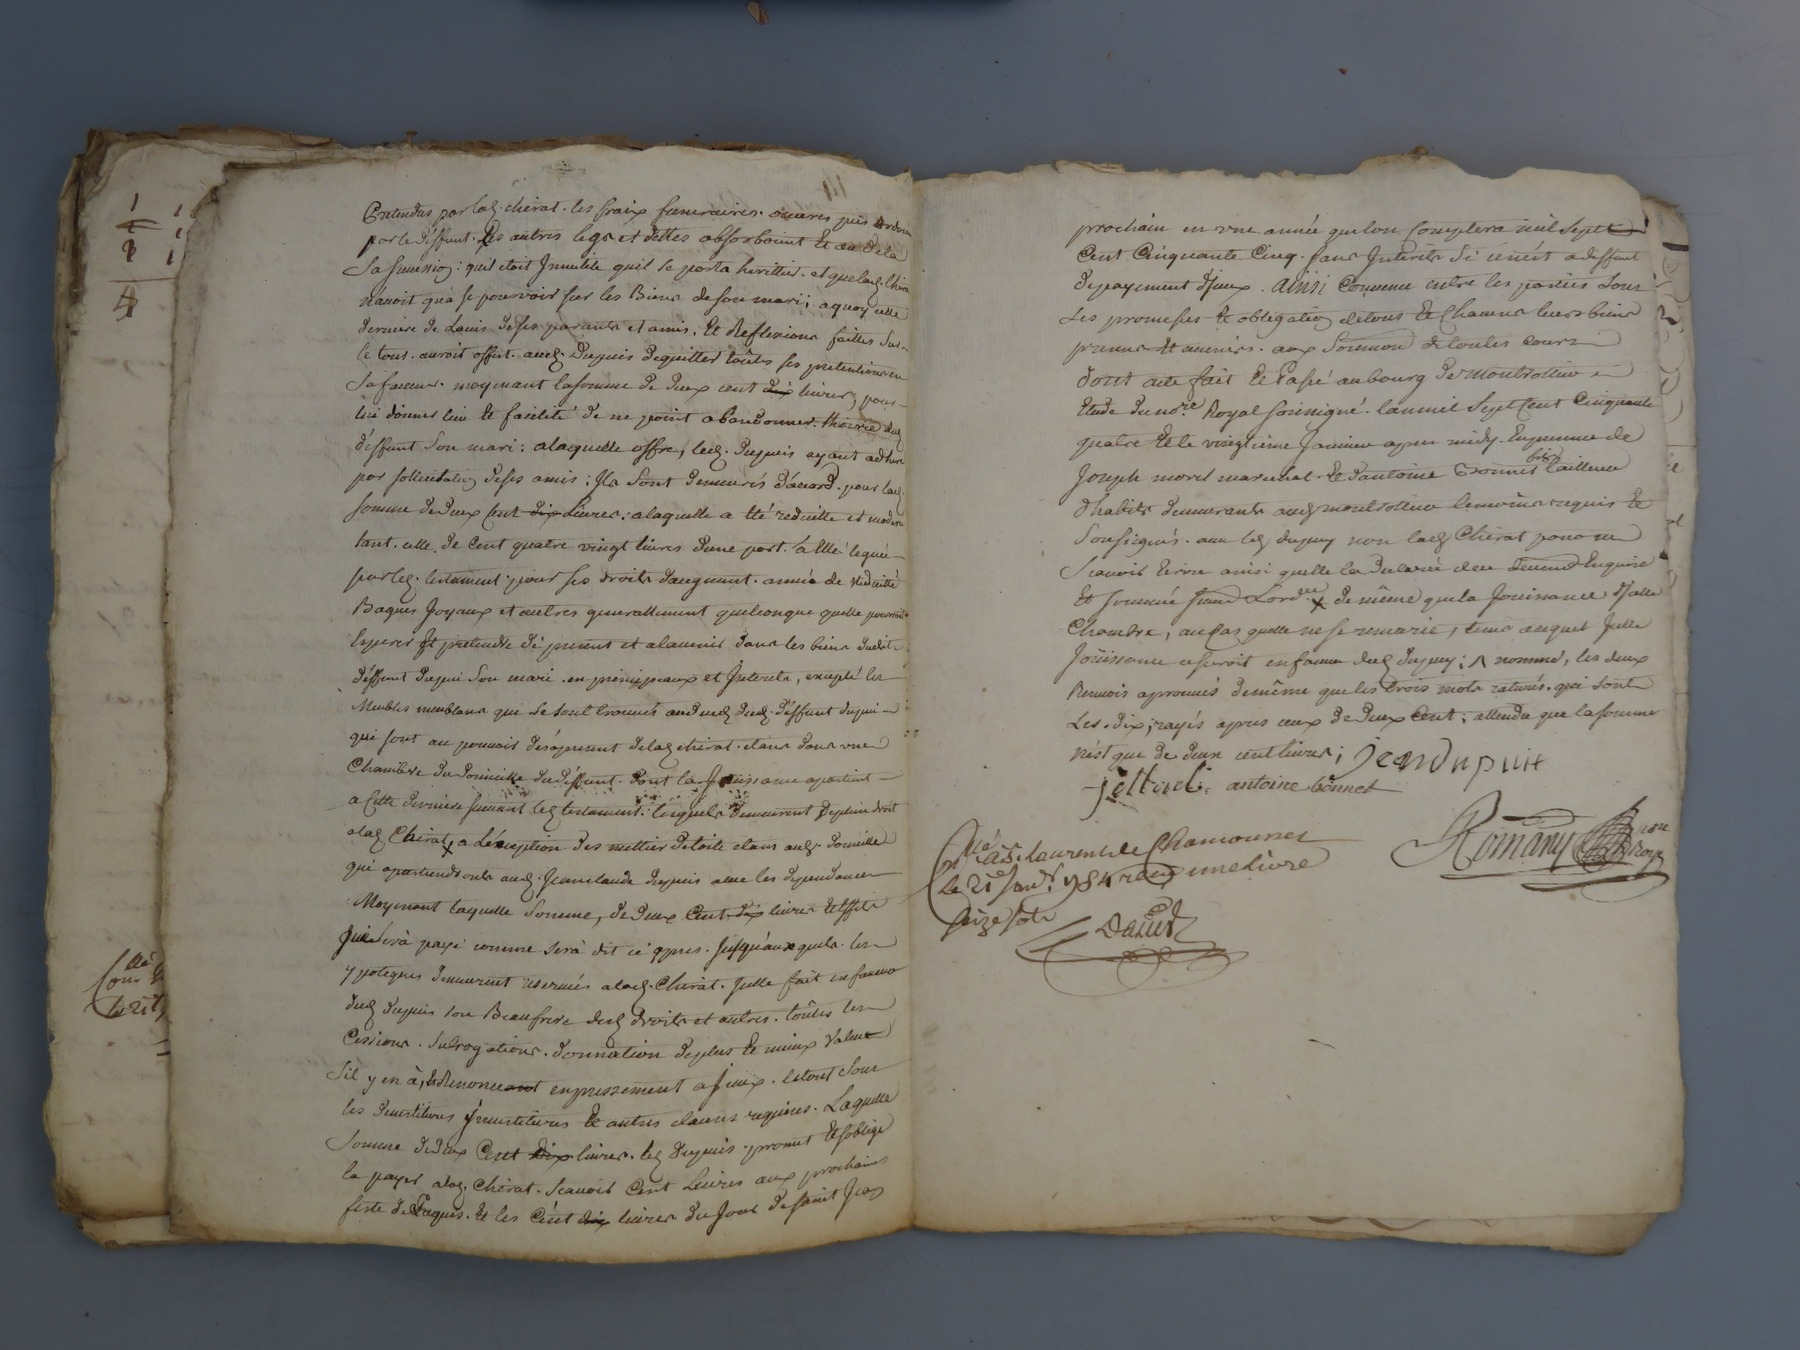 pretendus par lad. chirat. les fraix funeraires. oeuvres pies ordonn
par le déffunt. Les autres legs et dettes absorboint Et au dela
Sa succession: quil etoit Jnnutile quil se porta herittier. et que lad. Chira
n'auoit qua se pouruoir sur les Biens de son mari; a quoy cette
derniere de Lauis de ses parants et amis. Et Reflexions faittes Sur
le tout. auroit offert. aud. Dupuis de quitter toûtes ses pretentions en
Sa faueur. moyenant la somme de deux cent dix livres, pour
lui donner lieu Et facilité de ne point abandonner. Lhoirie dud.
déffunt Son mari: a laquelle offre, led. Dupuis ayant adheré
par sollicitation de ses amis: Jls Sont demeurés d'acord. pour lad.
somme de deux Cent dix Livres: a laquelle a Eté reduitte et moder
tant. celle de Cent quatre vingt livres dune part. a Elle leguée
par led. testament. pour ses droits d'augment. année de viduitté
Bagues Joyaux et autres generallement quelconque quelle pourroit
Esperer Et pretendre de present et alauenir dans les biens dudit
déffunt dupui Son mari. en principeaux et Jnterets, excepté les
Meubles meublans qui Se sont trouués au deced dud. déffunt dupui
qui sont au pouuoir de lad. chirat. dans une
Chambre du Domicille du déffunt. dont la Jouissance apartient
a Cette derniere suiuant led testament: lesquels demeurent de plein droit
alad Chirat x a L'éxeption des mettier de toile etans aud. domicille
qui apartiendronts aud. Jean claude dupuis avec les dependances
Moyenant laquelle Somme, de deux Cent dix livres
qui Serà payé comme Serà dit ci apres. Jusqu'aux quels. les
ypoteques demeurent reservés alad. Chirat. Jcelle fait en faueur
dud dupuis son Beaufrere desd droits et autres. toûtes les
Cessions. Subrogations. donnation de plus Et mieux Value
S'il y en à, Et Renonce expressement a Jceux. Le tout Sous
les devestitures Jnvestitures Et autres clauses requises. Laquelle
Somme de deux Cent dix livres. led dupuis promet Et s'oblige
la payer alad. Chirat. Scauoir Cent Livres aux prochaines
feste de Paques. Et les Cent dix livres du Jour de saint Jean
prochain en une année que lon Comptera mil Sept
Cent Cinquante Cinq. sans Jnterets Si cen'ét a deffaut
de payement d'Jceux. Ainsi Convenu entre les parties Sous
Les promesses Et obligation de tous Et Chacuns leurs biens
presens Et auenirs. aux Soumon de toutes cours
dont acte fait Et Passé au bourg de Montrottier
Etude du nore Royal soussigné. lan mil Sept Cent Cinquante
quatre Et le vingtieme Janvier apres midy. En presence de
Joseph morel marechal. Et d'antoine Bonnet tailleur
dhabits demeurants aud montrottier temoins requis Et
Soussignés. auec led dupuy non lad Chirat pour ne
Scauoir Ecrire ainsi quelle la declaré de ce Enquise
Et sommée suiuant Lordce x de même que la Jouissance d'Jcelle
Chambre, au Cas quelle ne se remarie, tems auquel Jcelle
Joüissance cesseroit en faueur dud dupuy: ʌ nommé, les deux
Renuois aprouués de même que les trois mots raturés. qui sont
Les. dix, rayés apres ceux de deux Cent; attendu que la somme
n'est que de deux cent livres; jean dupuit
antoine bonnet
Romany nore roy
Conllé a St Laurent de Chamousset
Le 21e Janvr 1754 recu une livre
seize sols